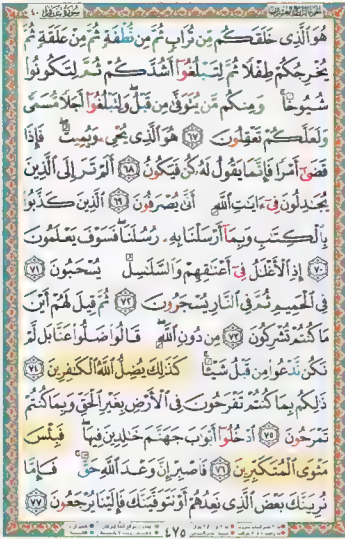 سورة غافر ٤٠
هُوَ ٱلَّذِى خَلَقَكُم مِّن تُرَابٍ ثُمَّ مِن نُّطْفَةٍ ثُمَّ مِنْ عَلَقَةٍ ثُمَّ
يُخْرِجُكُمْ طِفْلًا ثُمَّ لِتَبْلُغُوٓا۟ أَشُدَّكُمْ ثُمَّ لِتَكُونُوا۟
شُيُوخًا وَمِنكُم مَّن يُتَوَفَّىٰ مِن قَبْلُ وَلِتَبْلُغُوٓا۟ أَجَلًا مُّسَمًّى
وَلَعَلَّكُمْ تَعْقِلُونَ ٦٧ هُوَ ٱلَّذِى يُحْىِۦ وَيُمِيتُ فَإِذَا
قَضَىٰٓ أَمْرًا فَإِنَّمَا يَقُولُ لَهُۥ كُن فَيَكُونُ ٦٨ أَلَمْ تَرَ إِلَى ٱلَّذِينَ
يُجَٰدِلُونَ فِىٓ ءَايَٰتِ ٱللَّهِ أَنَّىٰ يُصْرَفُونَ ٦٩ ٱلَّذِينَ كَذَّبُوا۟
بِٱلْكِتَٰبِ وَبِمَآ أَرْسَلْنَا بِهِۦ رُسُلَنَا فَسَوْفَ يَعْلَمُونَ
٧٠ إِذِ ٱلْأَغْلَٰلُ فِىٓ أَعْنَٰقِهِمْ وَٱلسَّلَٰسِلُ يُسْحَبُونَ ٧١
فِى ٱلْحَمِيمِ ثُمَّ فِى ٱلنَّارِ يُسْجَرُونَ ٧٢ ثُمَّ قِيلَ لَهُمْ أَيْنَ
مَا كُنتُمْ تُشْرِكُونَ ٧٣ مِن دُونِ ٱللَّهِ قَالُوا۟ ضَلُّوا۟ عَنَّا بَل لَّمْ
نَكُن نَّدْعُوا۟ مِن قَبْلُ شَيْـًٔا كَذَٰلِكَ يُضِلُّ ٱللَّهُ ٱلْكَٰفِرِينَ ٧٤
ذَٰلِكُم بِمَا كُنتُمْ تَفْرَحُونَ فِى ٱلْأَرْضِ بِغَيْرِ ٱلْحَقِّ وَبِمَا كُنتُمْ
تَمْرَحُونَ ٧٥ ٱدْخُلُوٓا۟ أَبْوَٰبَ جَهَنَّمَ خَٰلِدِينَ فِيهَا فَبِئْسَ
مَثْوَى ٱلْمُتَكَبِّرِينَ ٧٦ فَٱصْبِرْ إِنَّ وَعْدَ ٱللَّهِ حَقٌّ فَإِمَّا
نُرِيَنَّكَ بَعْضَ ٱلَّذِى نَعِدُهُمْ أَوْ نَتَوَفَّيَنَّكَ فَإِلَيْنَا يُرْجَعُونَ ٧٧
٤٧٥